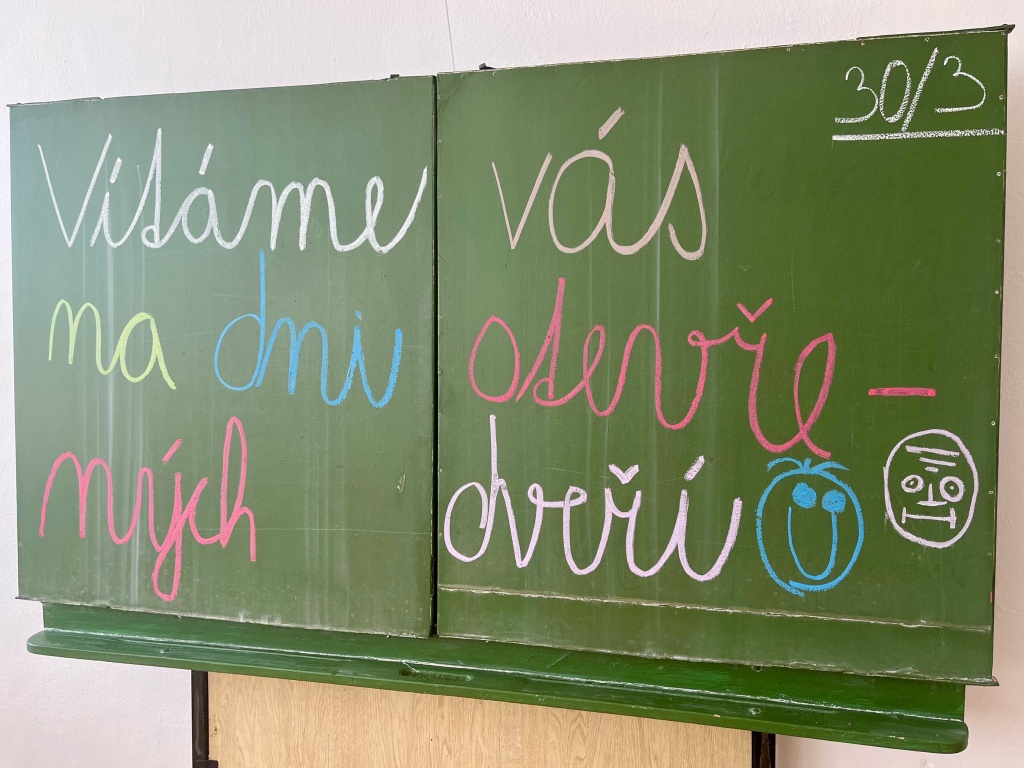 30/3
Vítáme vás
na dni otevře-
ných dveří